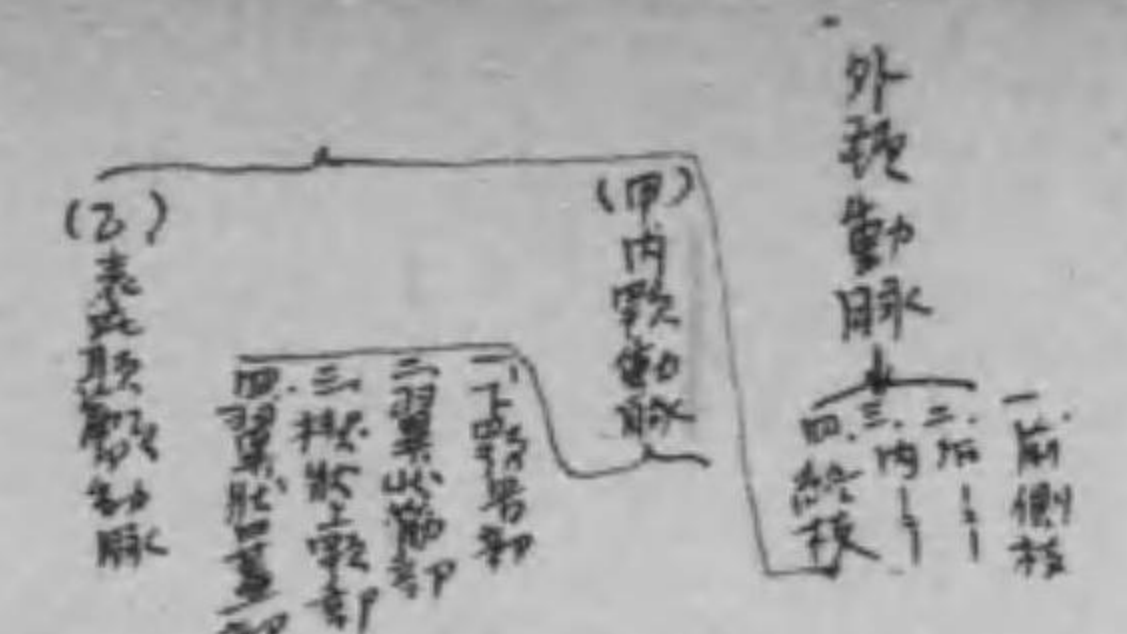 外頚動脈
一、前側枝
二、后〃〃
三、内〃〃
四、終枝
(甲)内顎動脈
一、下顎骨部
二、翼状筋部
三、楔状上顎部
四、翼状口蓋部
(乙)表浅顳顬動脈